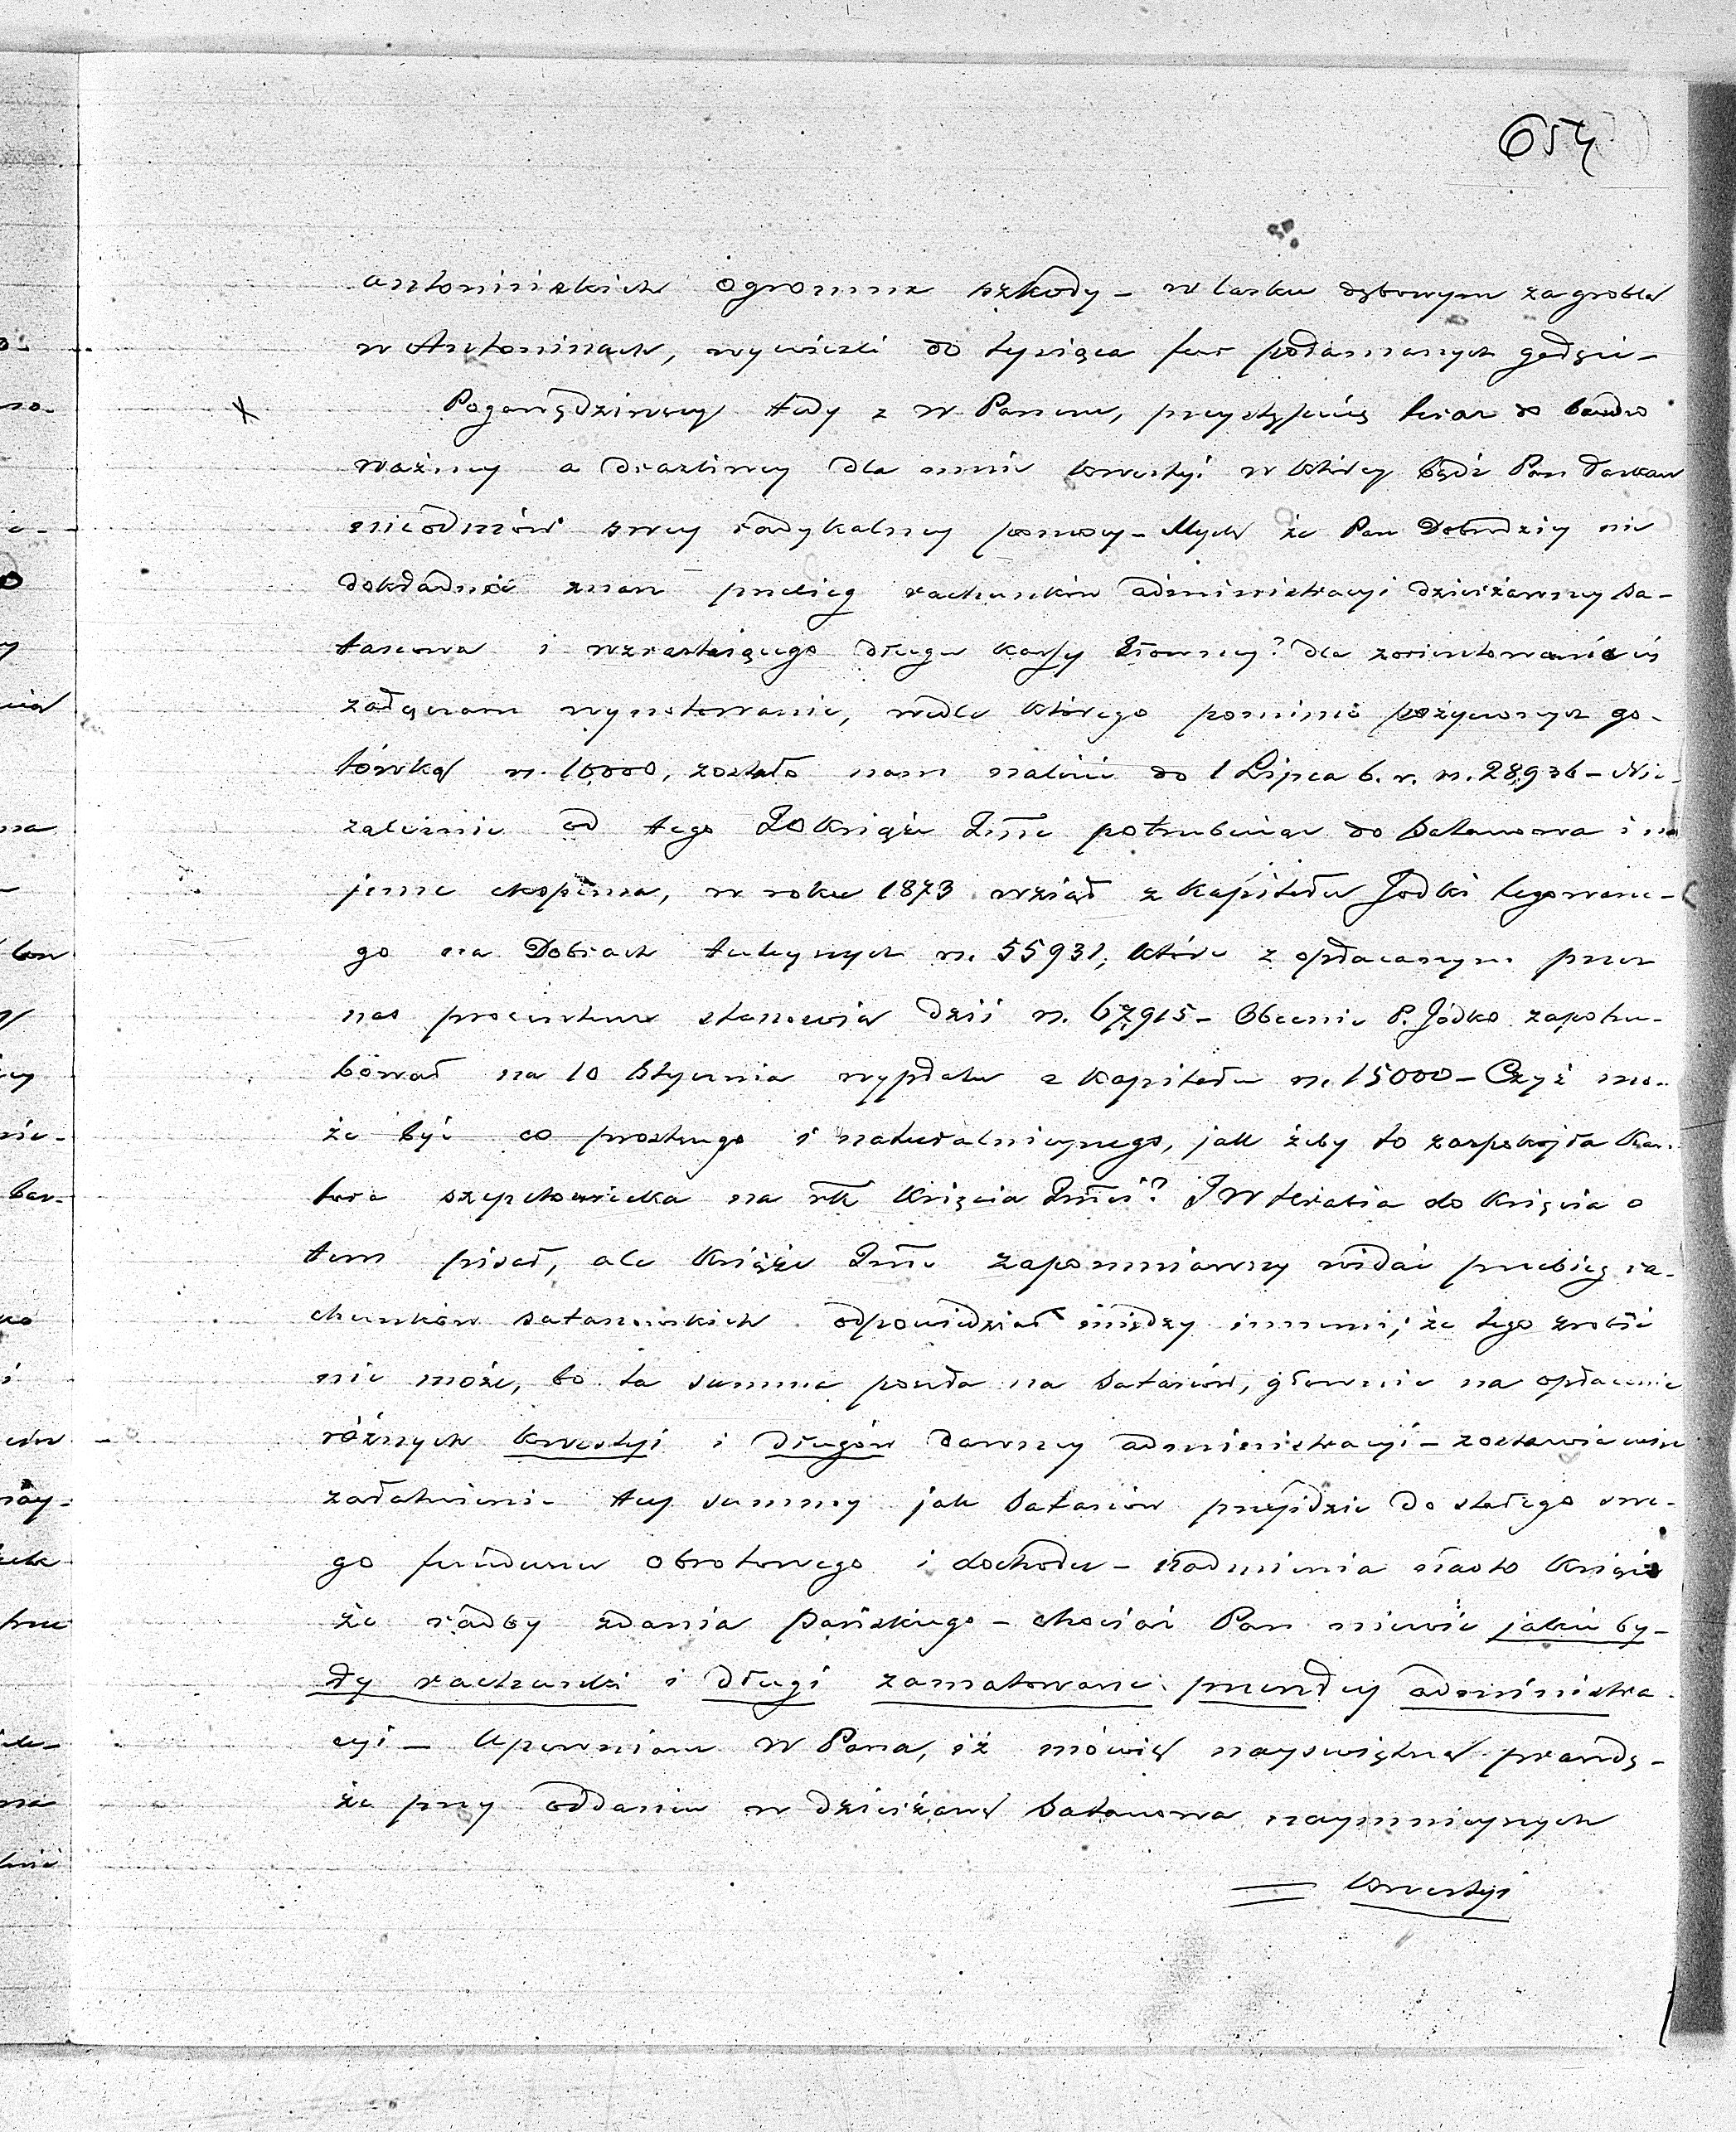 654
antonińskich ogromne szkody – w lasku dębowym za groblą
w Antoninach, wywieźli do tysiąca fur połamanych gałęzi –
Pogawędziwszy tedy z W Panem, przystępuię teraz do bardzo
ważney a drażliwey dla mnie kwestyi w którey bądź Pan łaskaw
nieodmów swey radykalney pomocy – Myślę że Pan Dobrodziey nie
dokładnie znan przebieg rachunków administracyi dzierżawney Sa-
tanowa i wzrastaiącego długu kassy Głowney? dla zorientowania się
załączam wynotowanie, wedle którego pomimo pożyczonych go-
tówką rs. 10000, zostało nam należeć do 1 Lipca b. r. rs. 28,936 – Nie-
zależnie od tego JO Książe Jmć potrzebuiąc do Satanowa i na
jenne expensa, w roku 1873 wziął z kapitału Jodki legowane-
go na Dobrach tuteyszych rs. 55931, które z opłacanym przez
nas procentem stanowią dziś rs. 67,915 – Obecnie P. Jodko zapotrze-
bował na 10 Stycznia wypłatę z kapitału rs. 15000 – Czyż mo-
że być co prostszego i naturalnieyszego, jak żeby to zaspokojła Kan-
tora szepetowiecka na rk Księcia Jmści? JW Hrabia do Księcia o
tem pisał, ale Książe Jmć zapomniawszy widać przebieg ra-
chunków satanowskich odpowiedział między innemi, że tego zrobić
nie może, bo ta summa poszła na Satanów, głownie na opłacenie
różnych kwestyi i długów dawney administracyi – zostawia więc
załatwienie tey summy jak Satanów przyjdzie do stałego swe-
go funduszu obrotowego i dochodu – Nadmienia Książe
że radby zdania Pańskiego – chociaż Pan niewié jakie by-
ły rachunki i długi zamatowane przeszłey administra-
cyi – Upewniam W Pana, iż mówię nayświętszą prawdę –
że przy oddaniu w dzierżawę Satanowa naymnieyszych
= kwestyi